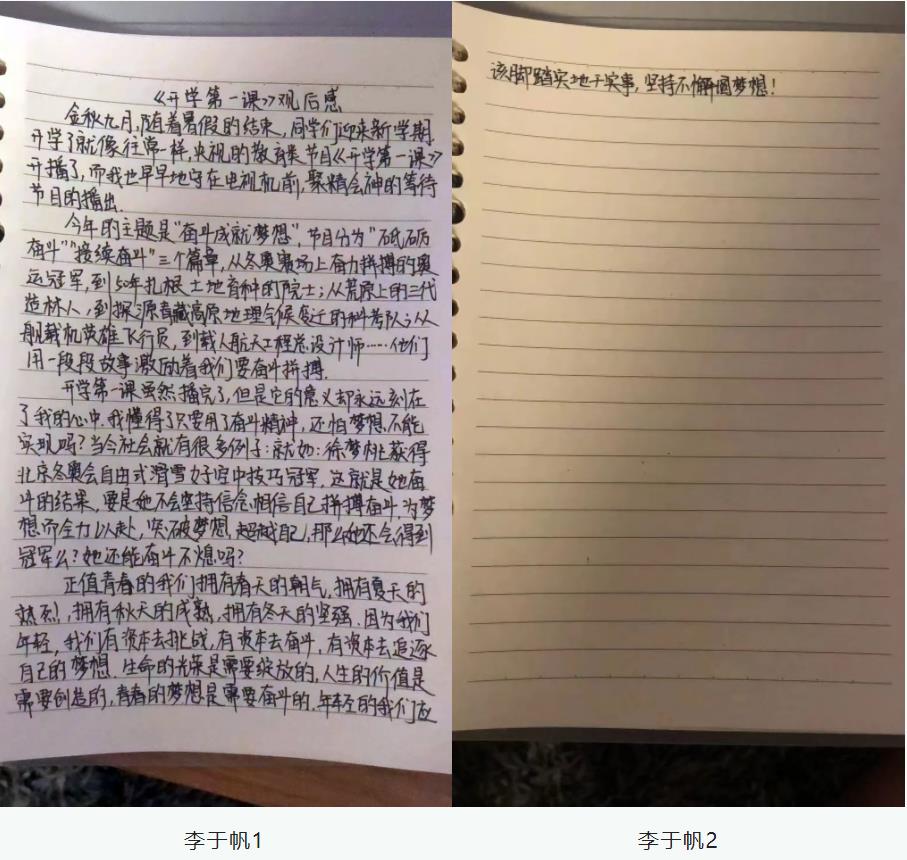 《开学第一课》观后感
金秋九月,随着暑假的结束,同学们迎来新学期.
开学了就像往常一样,央视的教育类节目《开学第一课》
开播了,而我也早早地守在电视机前,聚精会神的等待
节目的播出.
今年的主题是“奋斗成就梦想”,节目分为“砥砺
奋斗”“接续奋斗”三个篇章,从冬奥赛场上奋力拼搏的奥
运冠军,到50年扎根土地育种的院士;从荒原上的三代
造林人,到探源青藏高原地理气候变迁的科考队;从
舰载机英雄飞行员,到载人航天工程总设计师……他们
用一段段故事激励着我们要奋斗拼搏.
开学第一课虽然播完了,但是它的意义却永远刻在
了我的心中.我懂得了只要用了奋斗精神,还怕梦想不能
实现吗?当今社会就有很多例子:就如:徐梦桃获得
北京冬奥会自由式滑雪女子空中技巧冠军,这就是她奋
斗的结果,要是她不会坚持信念,相信自己拼搏奋斗.为梦
想而全力以赴,突破梦想,超越自己,那么她还会得到
冠军么?她还能奋斗不熄吗?
正值青春的我们拥有春天的朝气,拥有夏天的
热烈,拥有秋天的成熟,拥有冬天的坚强.因为我们
年轻,我们有资本去挑战,有资本去奋斗,有资本去追逐
自己的梦想.生命的光荣是需要绽放的,人生的价值是
需要创造的,青春的梦想是需要奋斗的.年轻的我们应
该脚踏实地干实事,坚持不懈圆梦想!
李于帆1
李于帆2